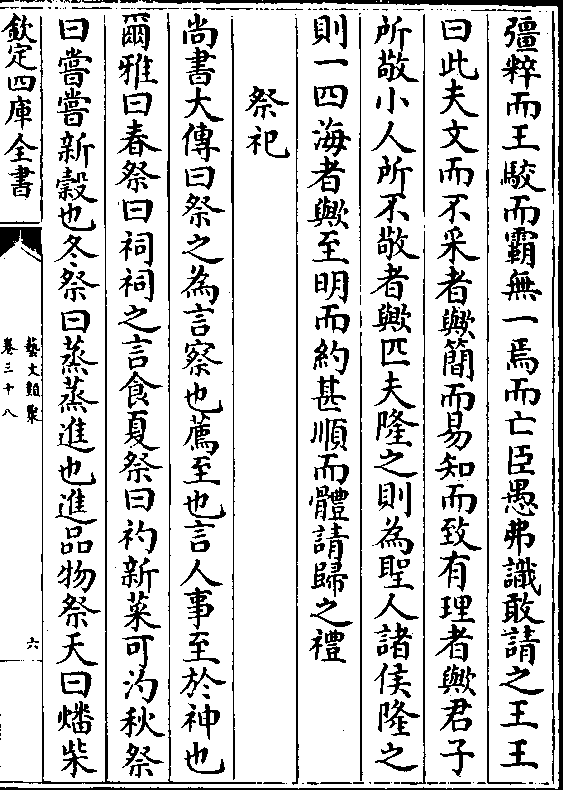 彊粹而王駮而霸無一焉而亡臣愚弗識敢請之王王
曰此夫文而不采者歟簡而易知而致有理者歟君子
所敬小人所不敬者歟匹夫隆之則為聖人諸侯隆之
則一四海者歟至明而約甚順而體請歸之禮
祭祀
尚書大傳曰祭之為言察也薦至也言人事至於神也
爾雅曰春祭曰祠祠之言食夏祭曰礿新菜可汋秋祭
曰嘗嘗新穀也冬祭曰蒸蒸進也進品物祭天曰燔柴
欽定四庫全書
藝文類聚
卷三十八
六